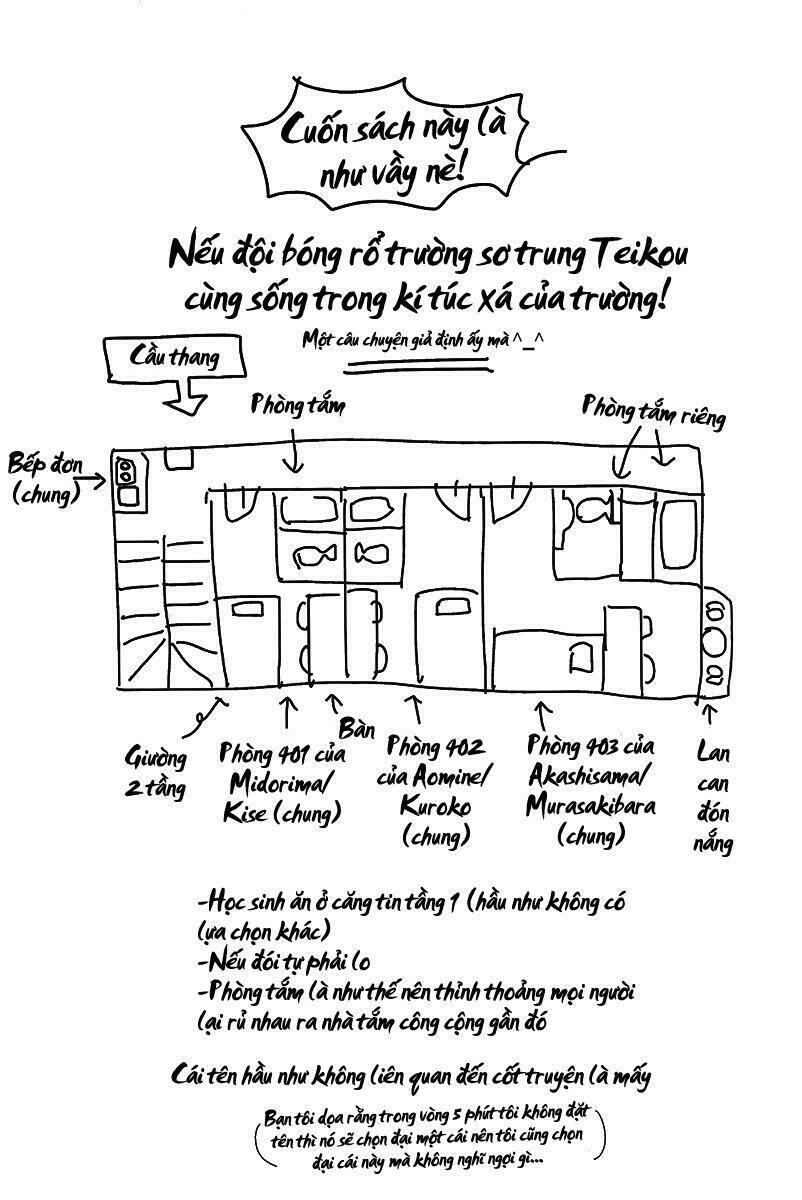 Cuốn sách này là
như vầy nè!
Nếu đội bóng rổ trường sơ trung Teikou
cùng sống trong kí túc xá của trường!
Một câu chuyện giả định ấy mà ^_^
Cầu thang
Phòng tắm
Phòng tắm riêng
Bếp đơn
(chung)
Giường
2 tầng
Phòng 401 của
Midorima/
Kise (chung)
Bàn
Phòng 402
của Aomine/
Kuroko
(chung)
Phòng 403 của
Akashisama/
Murasakibara
(chung)
Lan
can
đón
nắng
-Học sinh ăn ở căng tin tầng 1 (hầu như không có
lựa chọn khác)
-Nếu đói tự phải lo
-Phòng tắm là như thế nên thỉnh thoảng mọi người
lại rủ nhau ra nhà tắm công cộng gần đó
Cái tên hầu như không liên quan đến cốt truyện là mấy
(Bạn tôi dọa rằng trong vòng 5 phút tôi không đặt
tên thì nó sẽ chọn đại một cái nên tôi cũng chọn
đại cái này mà không nghĩ ngợi gì...)